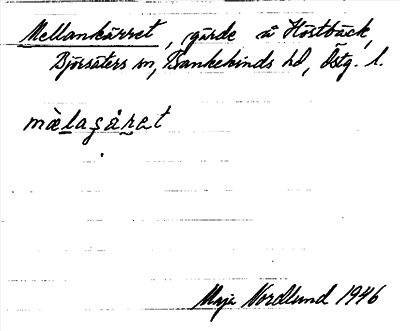 Mellankärret, gärde å Höstbäck,
Björsäters sn, Bankekinds hd, Östg. l.
mὰlagåret
Maja Nordlund 1946